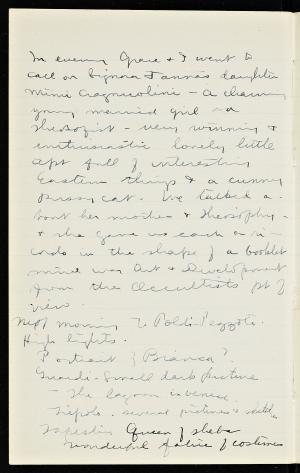 In evening Grace & I went to
call on Signora Fanna's daughter
Mimi — a charming
young married girl - a
theosofist - very winning &
enthusiastic lovely little
apt full of interesting
Eastern things & a cunning
pussy cat. We talked a-
bout her mother & theosophy -
& she gave us each a ri-
cordo in the shape of a booklet
mine was Art & Development
from the Occultists pt of
view.
Next morning to Poldi-Pezzoli.
High lights.
Portrait of Bianca?
Guardi - Small dark picture
- The lagoon in Venice.
Tiepolo. several pictures & sketches
Tapestry Queen of Sheba
Wonderful fabric of costumes